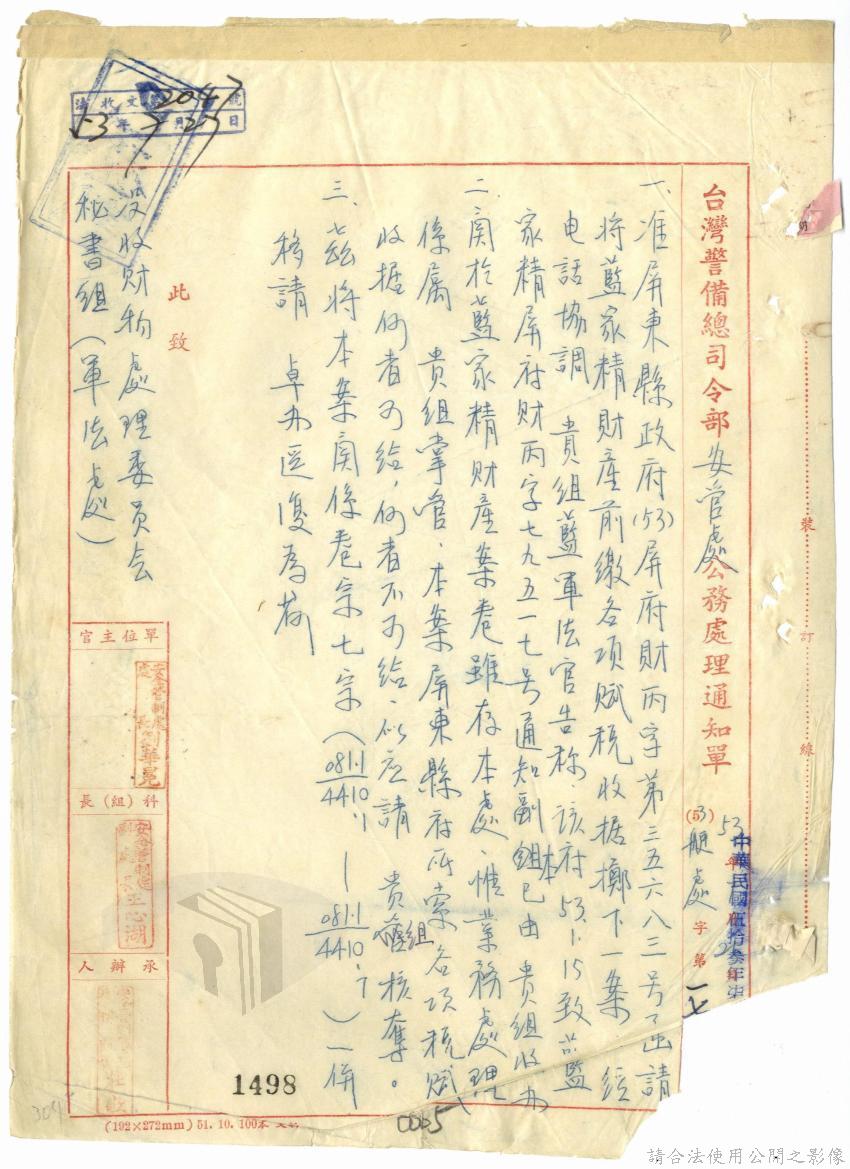 台灣警備總司令部安管處公務處理通知單
(53)
處字第一七
中華民國伍拾叁年
裝
訂
線
一、准屏東縣政府(53)屏府財丙字第三五六八三号函請
將藍家精財產前繳各項賦税收据擲下一案經
电話協調 貴組藍軍法官告称:該府53.1.15致藍
家精屏府財丙字七九五一七号通知副本組已由貴組收办
二、関於藍家精財產案卷雖存本處、惟業務處理、
係属 貴組掌管、本案屏東縣府所索各項税賦
收据何者可給,何者不可給、仍应請 貴組核奪。
三、茲將本案関係卷宗七宗(0811/4410 1 — 0811/4410 7)一併
移請 卓办逕復為荷
此致
没收財物處理委員会
秘書組(軍法處)
法收文第2047號
53年7月27日
單位主官
科(組)長
承辦人
王心湖
1498
(192×272mm) 51. 10. 100本
0005
304
請合法使用公開之影像